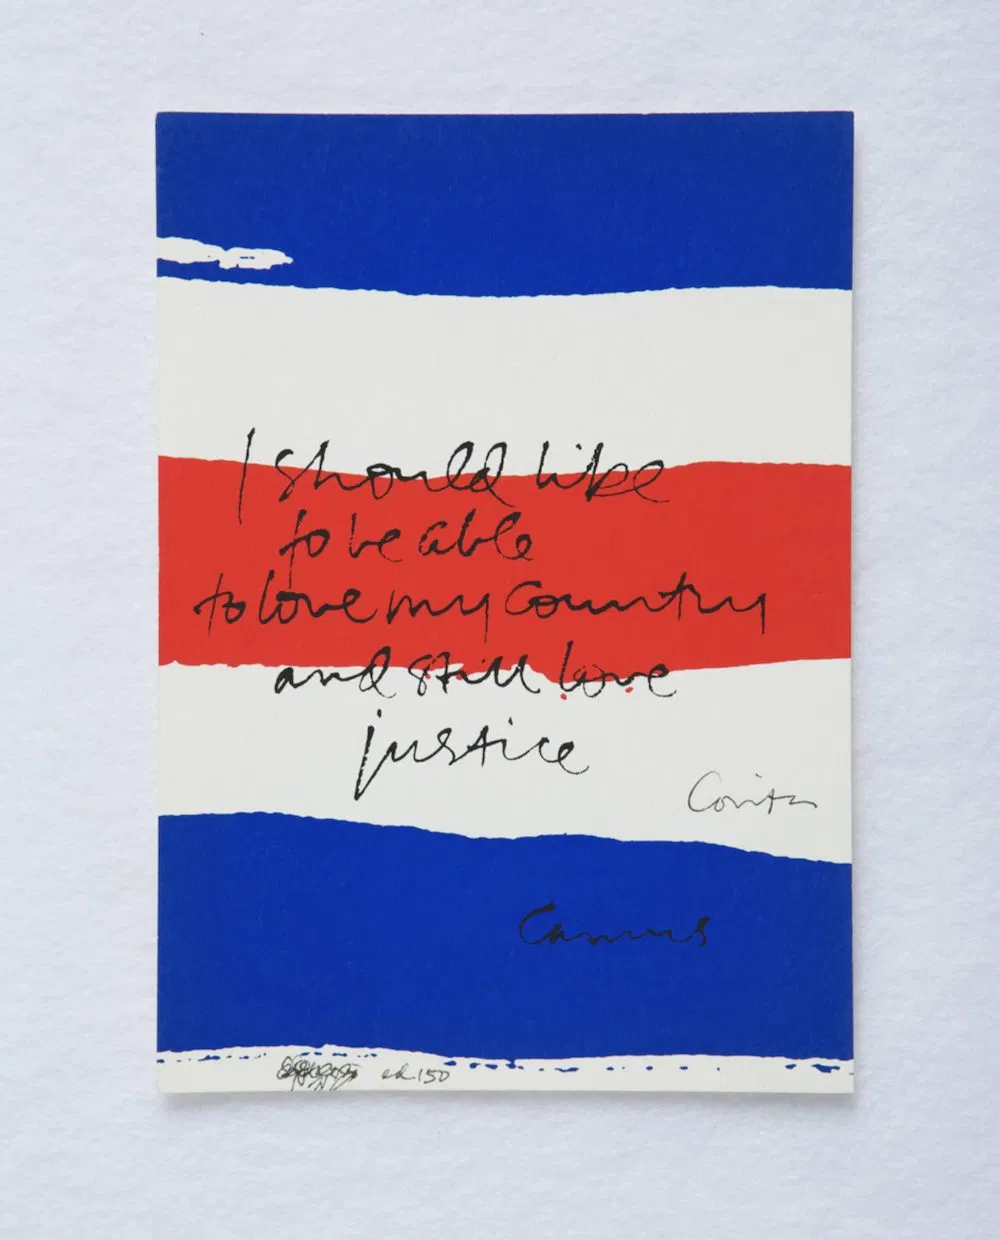 I should like
to be able
to love my country
and still love
justice
Corita
Camus
ed. 150